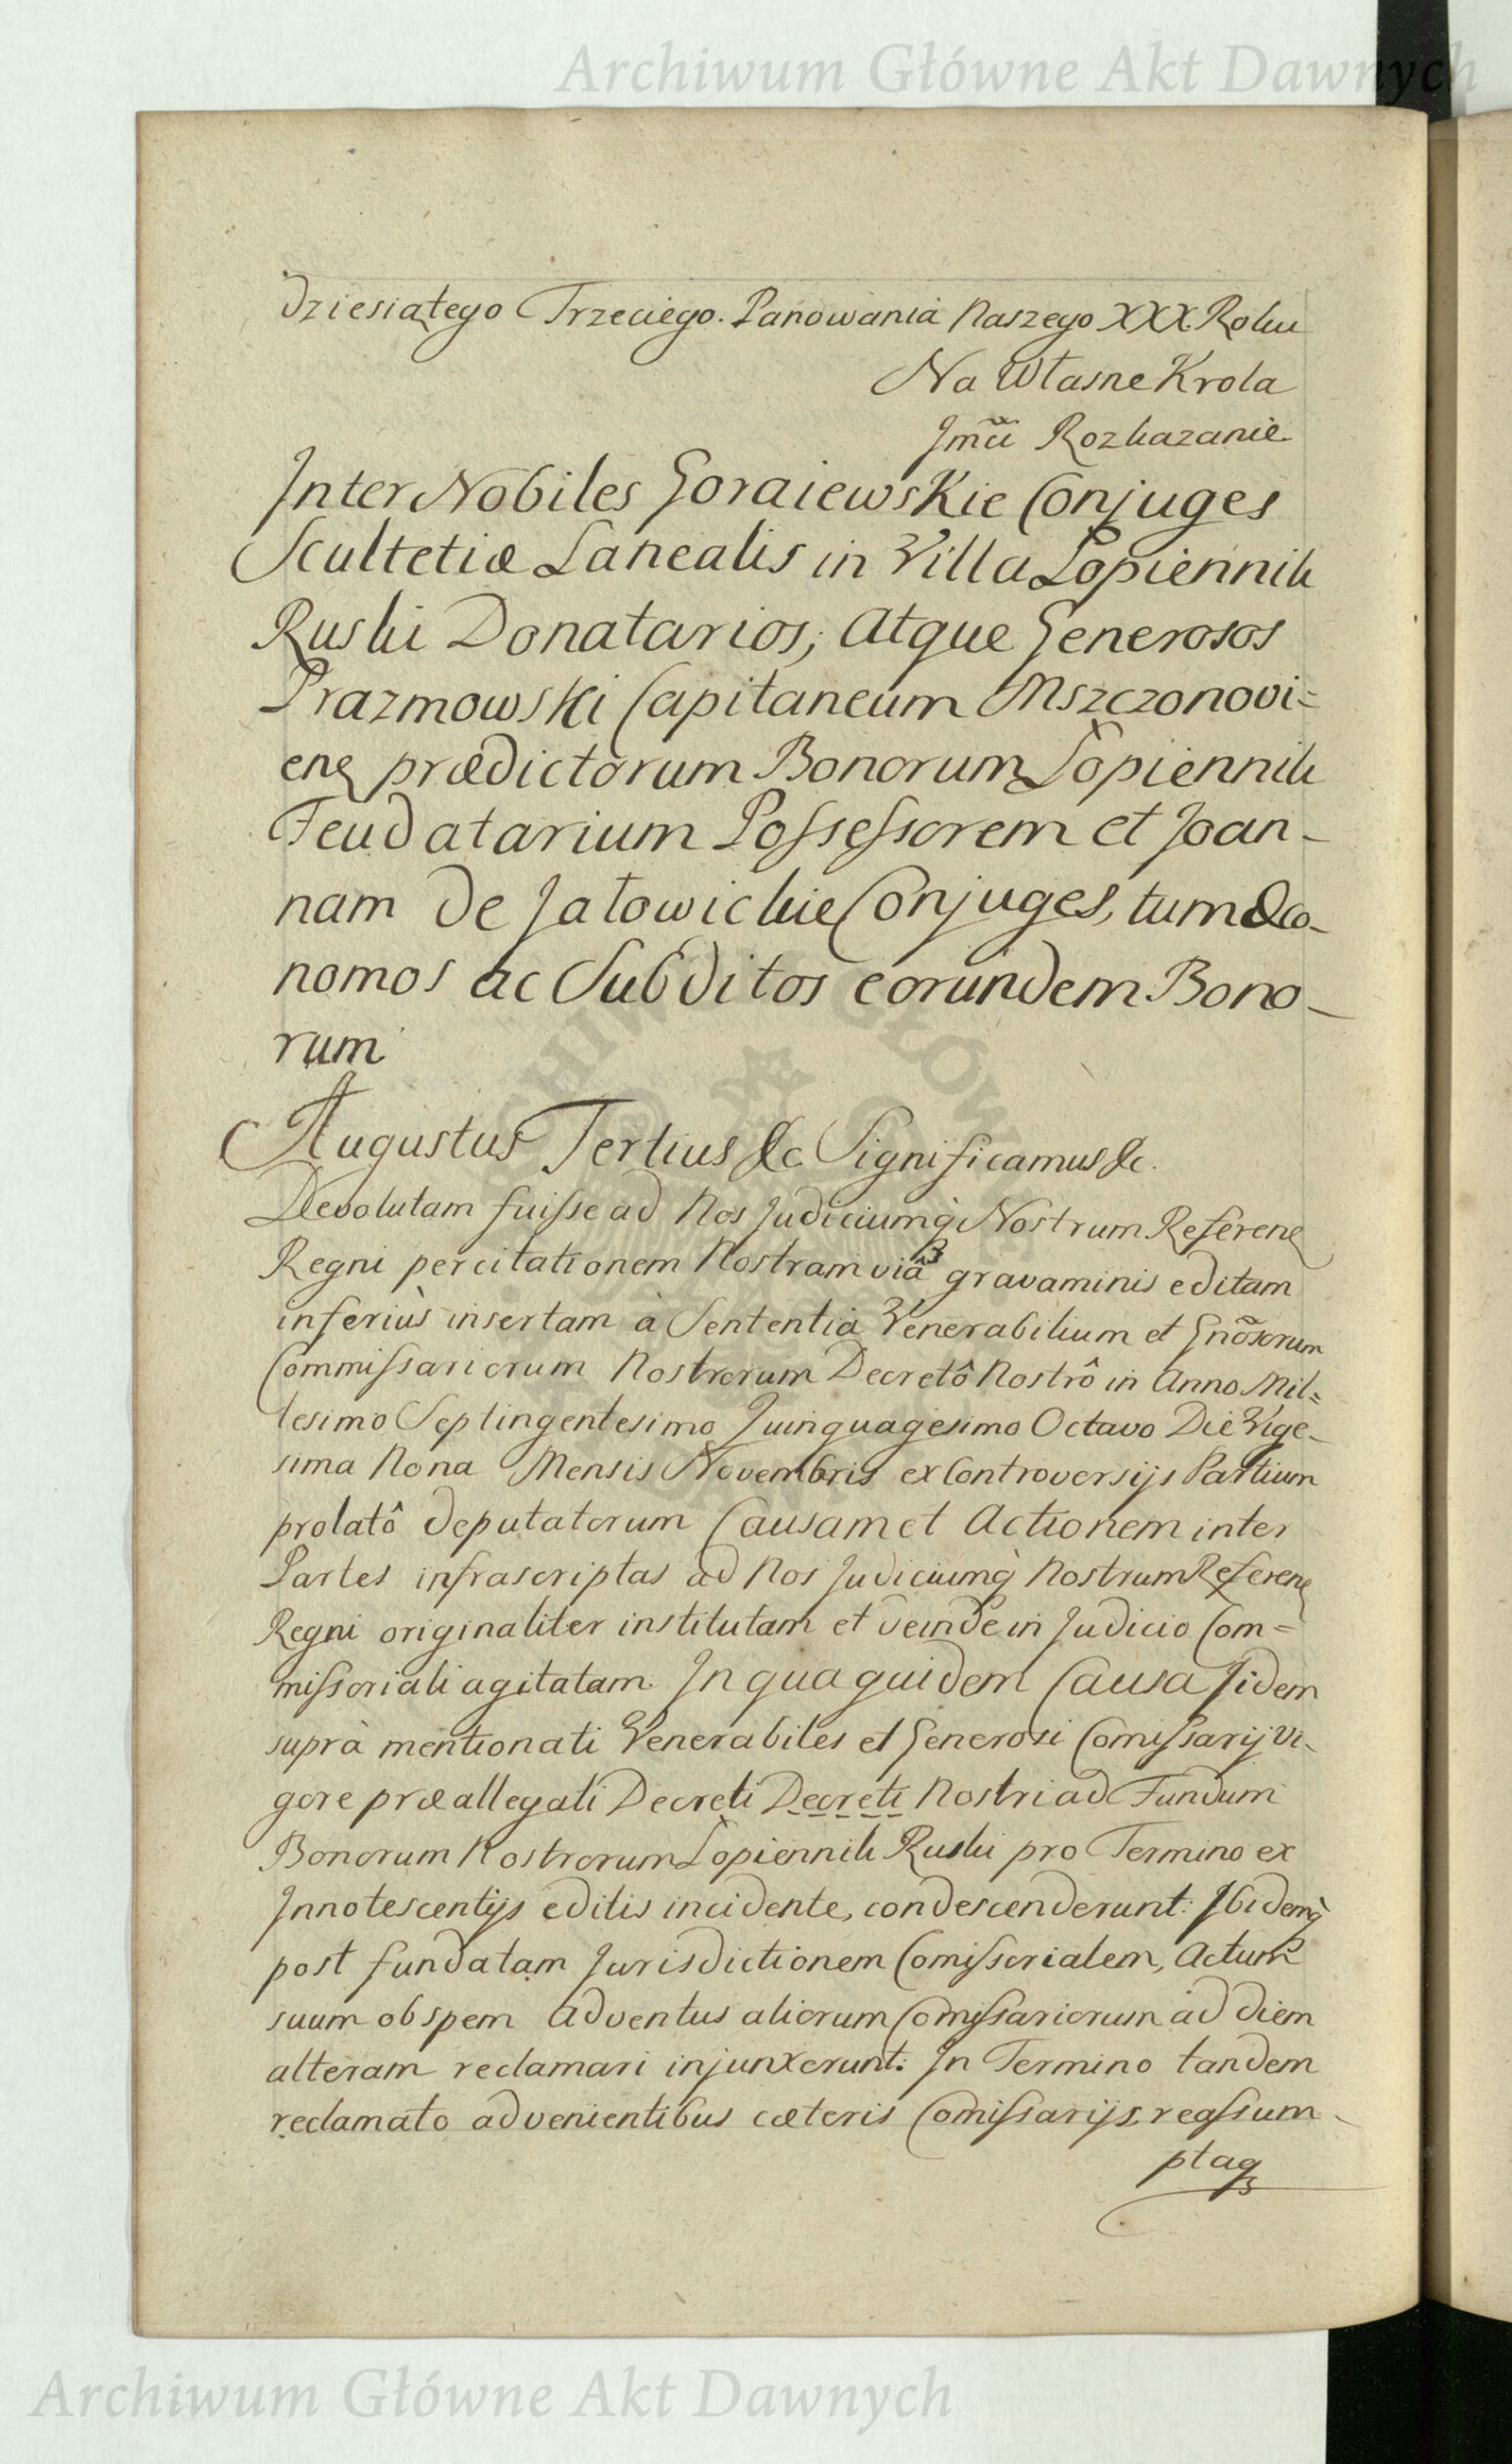 Archiwum Główne Akt Dawnych
dziesiątego Trzeciego. Panowania Naszego XXX. Roku
Na Własne Krola
Jmći Rozkazanie.
Inter Nobiles Goraiewskie Conjuges
Scultetiæ Lanealis in Villa Łopiennik
Ruski Donatarios, atque Generosos
Prazmowski Capitaneum Mszczonovi=
en̄ prædictorum Bonorum Łopiennik
Feudatarium Possessorem et Joan-
nam de Jałowickie Conjuges, tum Œco-
nomos ac Subditos eorundem Bono-
rum
Augustus Tertius &c Significamus &c.
Devolutam fuisse ad Nos Judiciumq̀ Nostrum Referen̄
Regni per citationem Nostram viâ gravaminis editam
inferiùs insertam à Sententia Venerabilium et Gnõsorum
Commissariorum Nostrorum Decretô Nostrô in Anno Mil=
lesimo Septingentesimo Quinquagesimo Octavo Die Vige-
sima Nona Mensis Novembris ex Controversijs Partium
prolatô deputatorum Causam et Actionem inter
Partes infrascriptas ad Nos Judiciumq̀ Nostrum Referen̄
Regni originaliter institutam et deinde in Judicio Com=
missoriali agitatam. In qua quidem Causa Iidem
suprà mentionati Venerabiles et Generosi Comissarij vi-
gore præallegati Decreti Decreti Nostri ad Fundum
Bonorum Nostrorum Łopiennik Ruski pro Termino ex
Innotescentijs editis incidente, condescenderunt: Ibidemq̀
post fundatam Jurisdictionem Comissorialem, Actum
suum ob spem adventus aliorum Comissariorum ad diem
alteram reclamari injunxerunt: In Termino tandem
reclamato advenientibus cæteris Comissarijs, reassum-
ptaq
Archiwum Główne Akt Dawnych